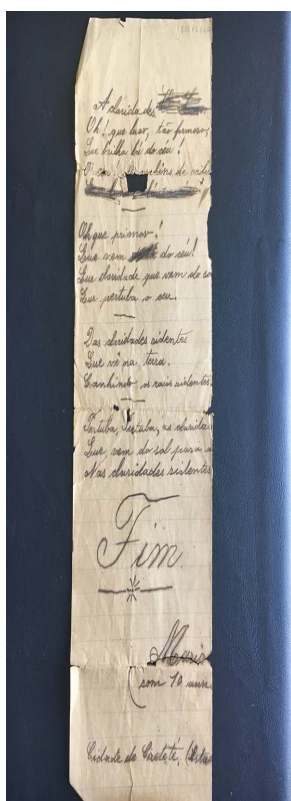 A claridades
Oh! que luar, tão formoso,
Que brilha lá do ceu!
Oh que primor!
Que vem do céu!
Que claridade que vem do so
Que pertuba o ceu.
Das claridades ardentes
Que vê na terra.
Caminhindo os raios ardentes.
Pertuba, Pertuba, as claridas
Que vem do sol para a
Nas claridades ardentes
Fim
Mario
(com 10 ann
Cidade de Caeteté, (Esta